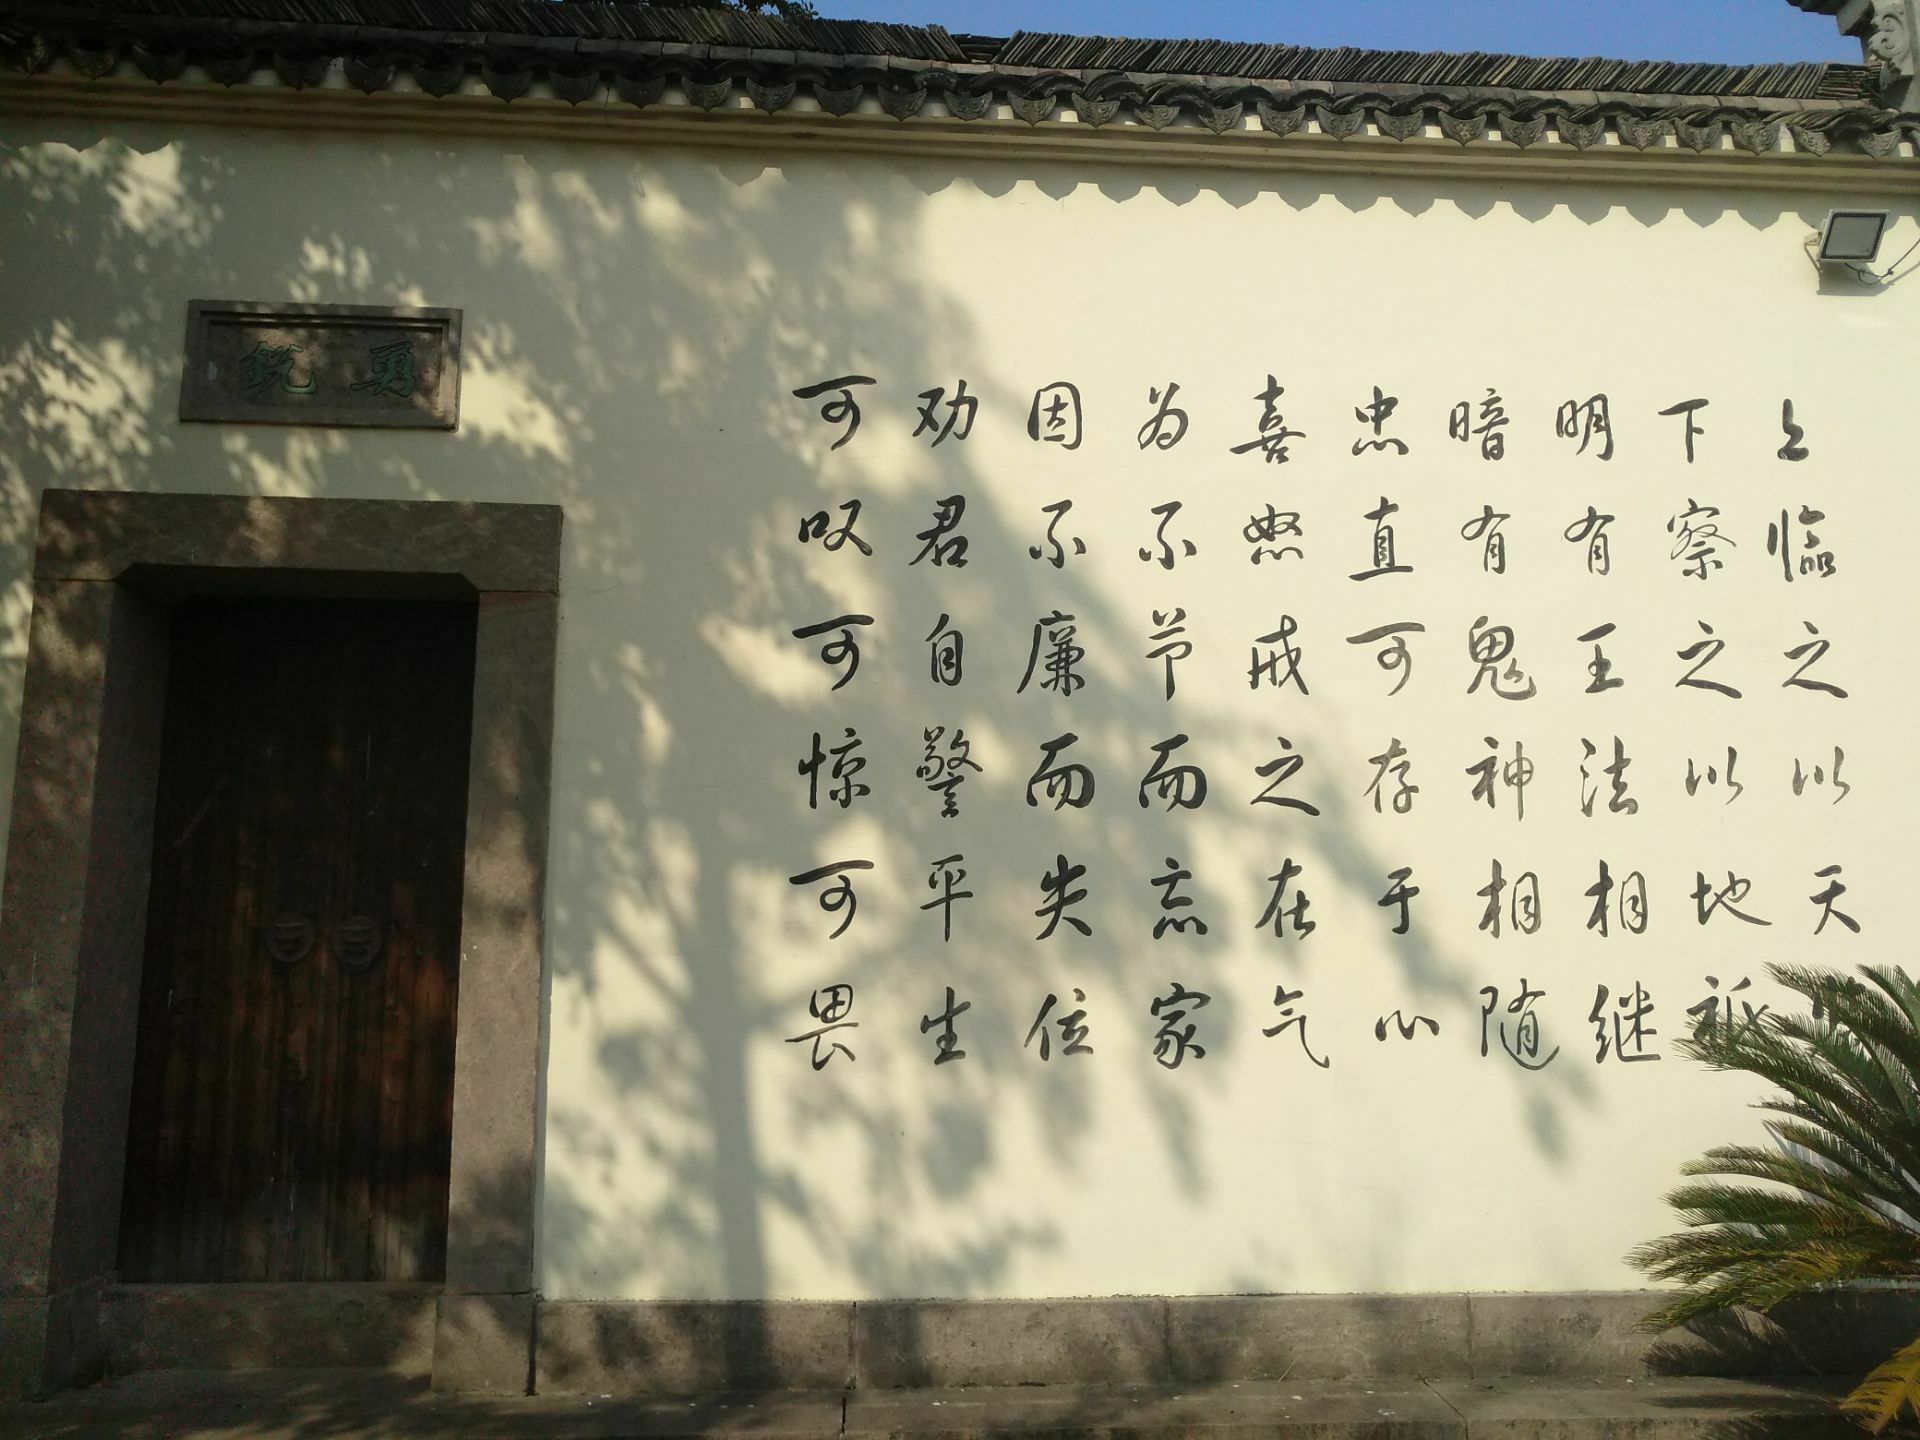 上临之以天
下察之以地祇
明有王法相继
暗有鬼神相随
忠直可存于心
喜怒戒之在气
为不节而忘家
因不廉而失位
劝君自警平生
可叹可惊可畏
勇鋭